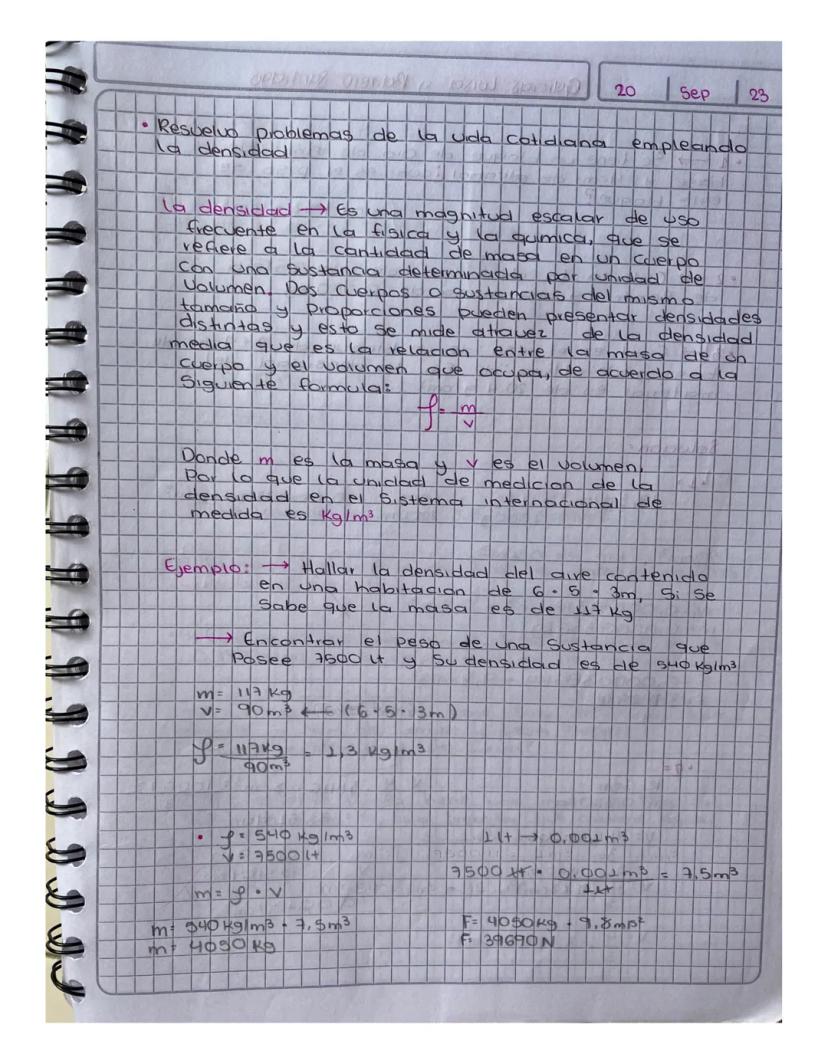 20 | Sep | 23
• Resuelvo problemas de la vida cotidiana empleando
la densidad
La densidad → Es una magnitud escalar de uso
frecuente en la fisica y la quimica, que se
refiere a la cantidad de masa en un cuerpo
con una sustancia determinada por unidad de
volumen. Dos cuerpos o sustancias del mismo
tamaño y proporciones pueden presentar densidades
distintas y esto se mide atravez de la densidad
media que es la relacion entre la masa de un
cuerpo y el volumen que ocupa, de acuerdo a la
Siguiente formula:
ρ = m/v
Donde m es la masa y v es el volumen.
Por lo que la unidad de medicion de la
densidad en el Sistema internacional de
medida es Kg/m³
Ejemplo: → Hallar la densidad del aire contenido
en una habitacion de 6 · 5 · 3m, Si se
Sabe que la masa es de 117 kg
→ Encontrar el peso de una Sustancia que
Posee 7500 lt y su densidad es de 540 Kg/m³
m= 117 Kg
v= 90m³ ← (6·5·3m)
ρ= 117kg/90m³ = 1,3 kg/m³
• ρ= 540 kg/m³
v= 7500 lt
m= ρ · v
m= 540 kg/m³ · 7,5m³
m= 4050 kg
1 lt → 0.001m³
7500 lt · 0.001m³/1lt = 7,5m³
F= 4050kg · 9,8m/s²
F= 39690N